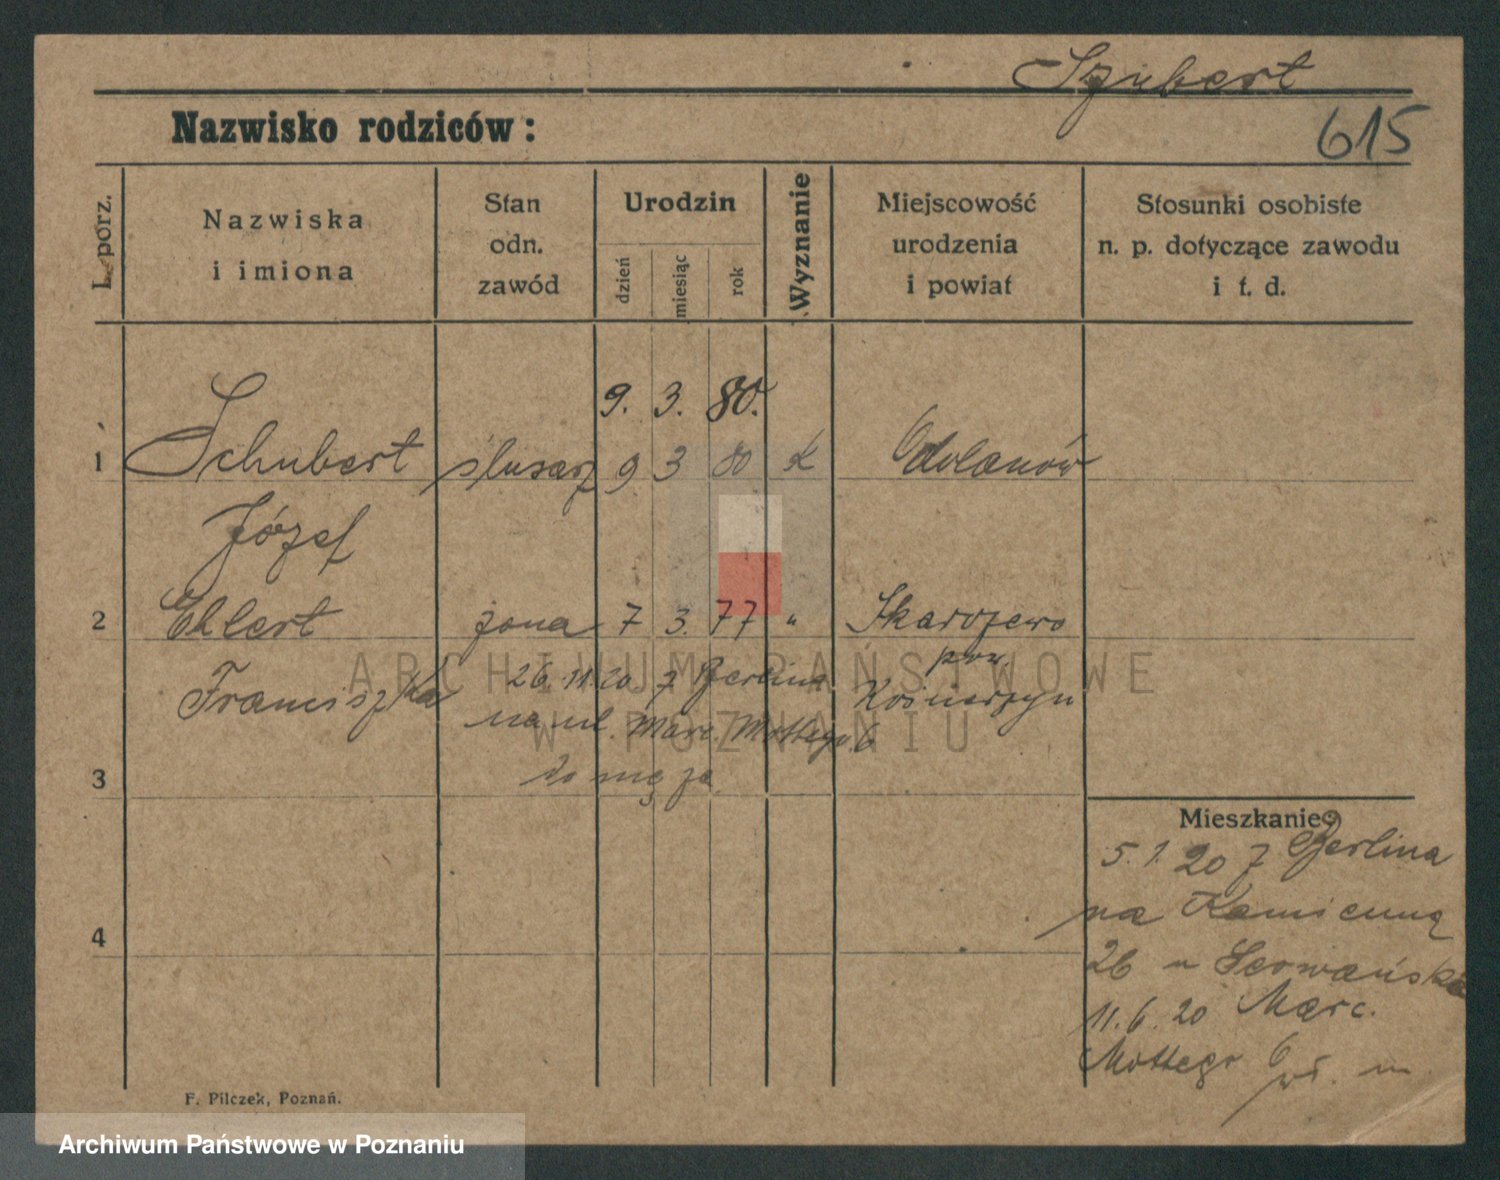 Szubert
Nazwisko rodziców:
615
L. porz.
Nazwiska
i imiona
Stan
odn.
zawód
Urodzin
dzień
miesiąc
rok
Wyznanie
Miejscowość
urodzenia
i powiat
Stosunki osobiste
n. p. dotyczące zawodu
i t. d.
9. 3. 80.
1 Schubert ślusarz 9 3 80 k Odolanów
Józef
2 Ehlert żona 7 3. 77 " Skarszewo
pow.
Franciszka
Kościerzyn
26.11.20 z Berlina
na ul. Marc. Mottego 6
do męża
3
4
Mieszkanie
5.1.20 z Berlina
na Kamienną
26 u
11.6.20 Marc.
Mottego 6 wł. m
F. Pilczek, Poznań.
ARCHIWUM PAŃSTWOWE
W POZNANIU
Archiwum Państwowe w Poznaniu